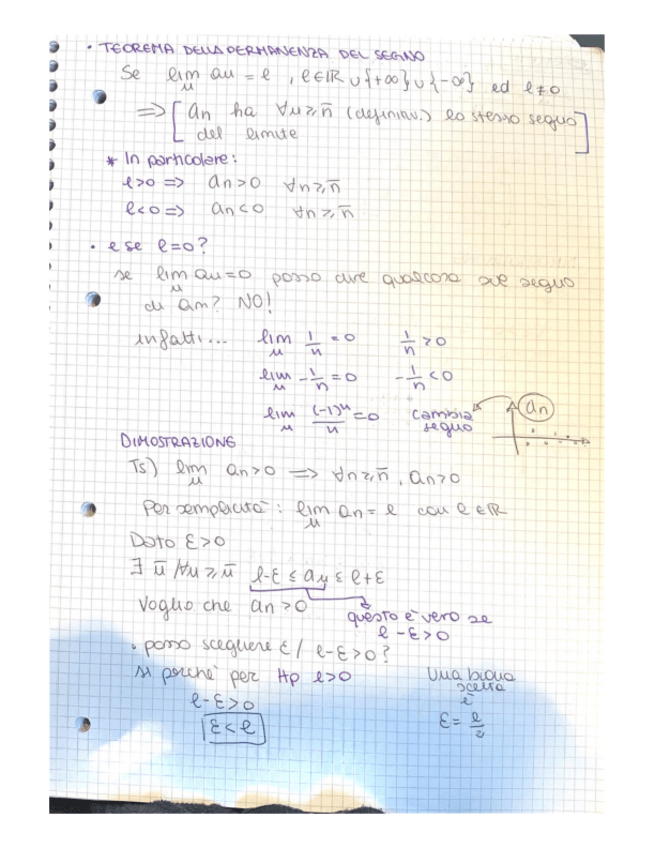 • TEOREMA DELLA PERMANENZA DEL SEGNO
Se lim an = l , l∈ℝ ∪{+∞}∪{-∞} ed l≠0
n
=> [an ha ∀n≥n̄ (definitiv.) lo stesso segno
del limite]
* In particolare:
l>0 => an>0 ∀n≥n̄
l<0 => an<0 ∀n≥n̄
• e se l=0?
se lim an=0 posso dire qualcosa sul segno
n
di an? NO!
infatti... lim 1/n = 0 1/n >0
n
lim -1/n = 0 -1/n <0
n
lim (-1)^n/n =0 cambia segno an
n
DIMOSTRAZIONE
Ts) lim an>0 => ∀n≥n̄, an>0
n
Per semplicità: lim an = l con l∈ℝ
n
Dato ε>0
∃ n̄ /∀n≥n̄ l-ε ≤ an ≤ l+ε
Voglio che an>0 questo è vero se
l-ε>0
• posso scegliere ε/ l-ε>0?
si perché per Hp l>0
l-ε>0
ε<l
Una buona
scelta
è
ε= l/2